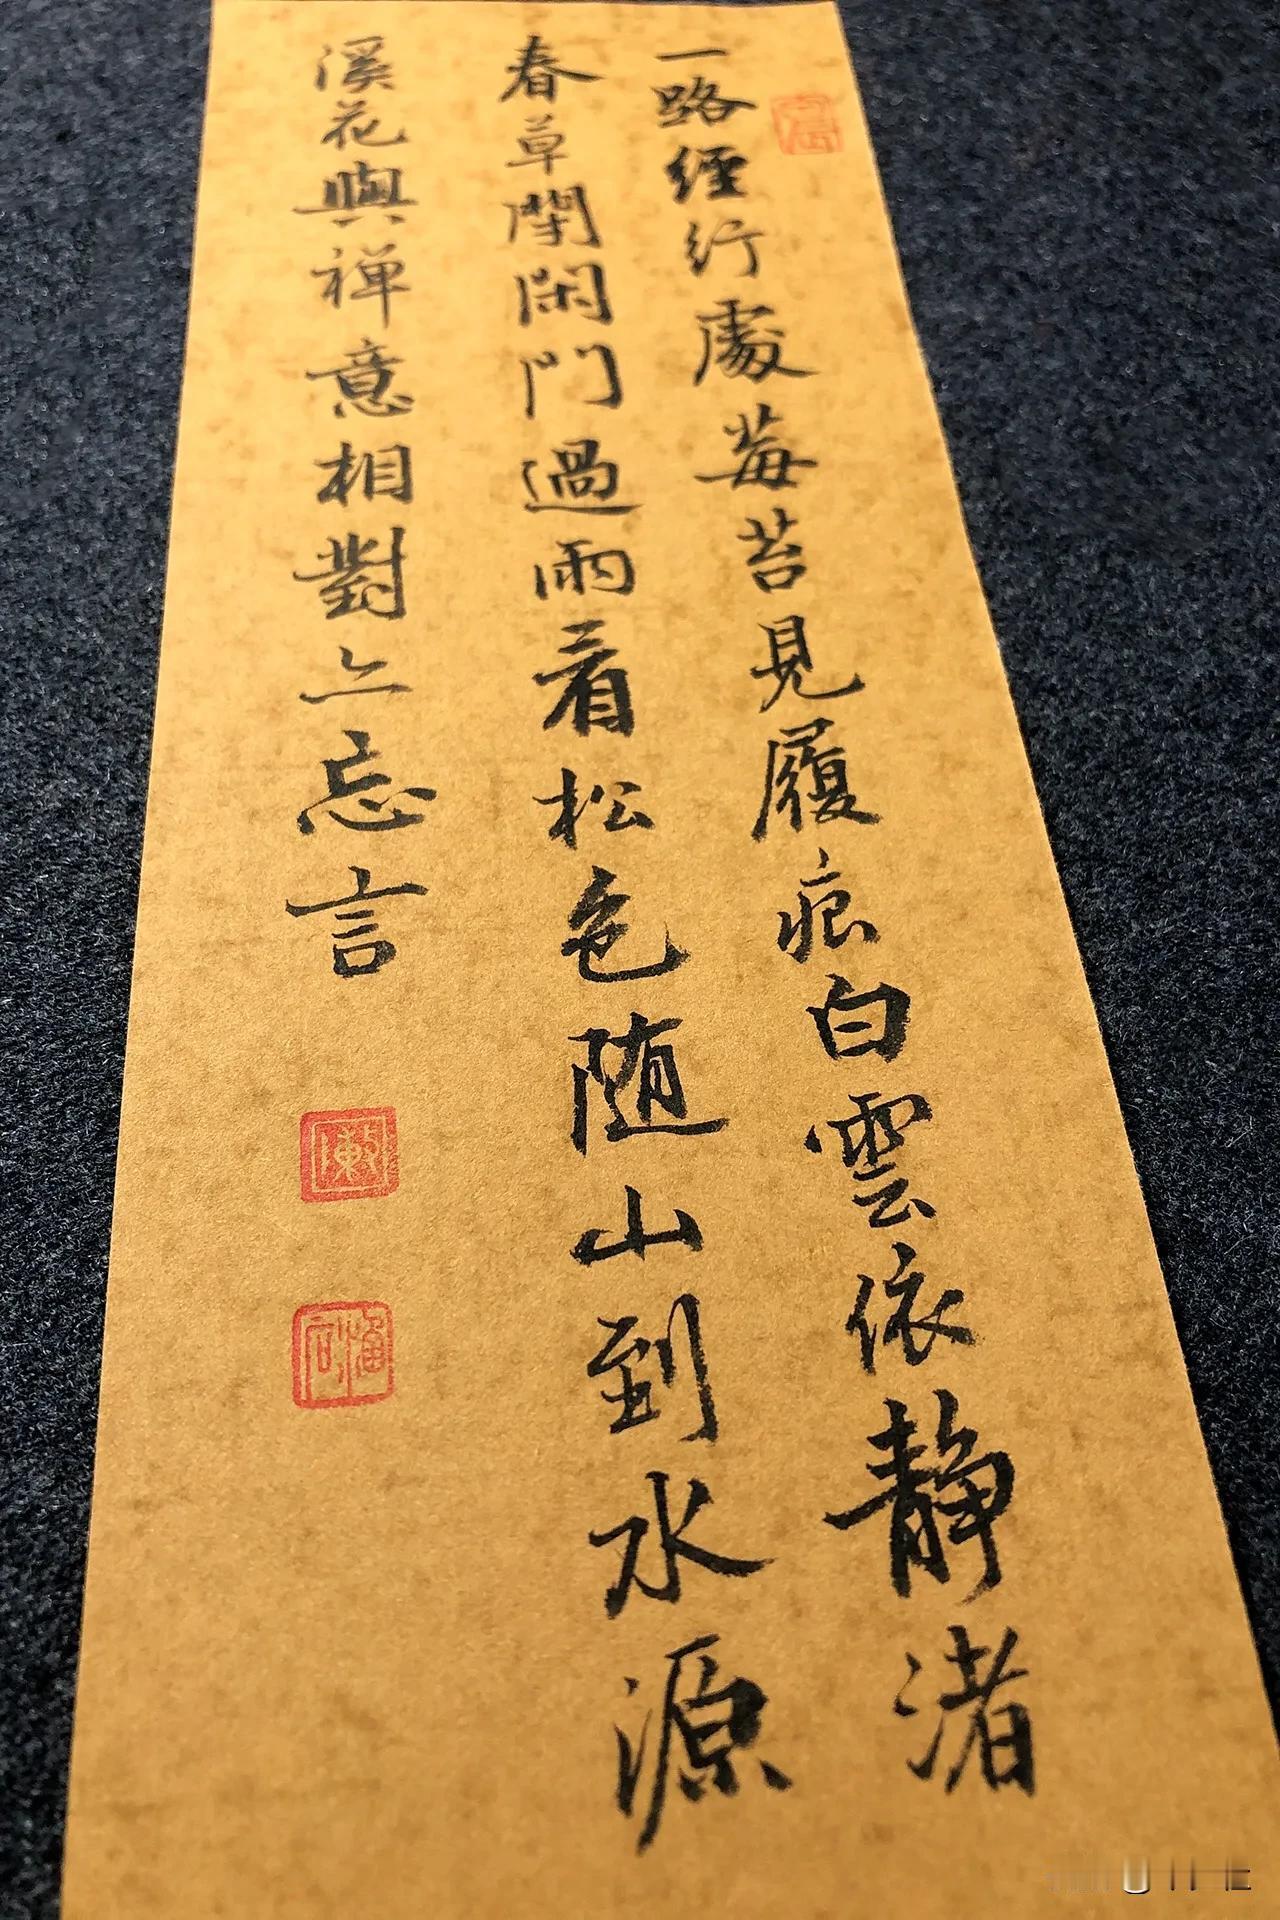 一路經行處莓苔見履痕白雲依靜渚
春草閉閑門過雨看松色随山到水源
溪花與禅意相對亦忘言